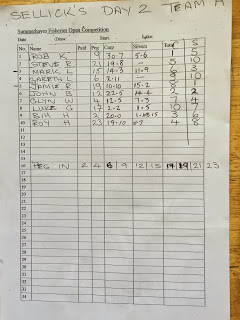 SELLICK'S DAY 2 TEAM A
Summerhayes Fisheries Open Competition
Date Draw Start Lake:
No. Name Paid Peg Carp Silvers Total S
1 ROB K 9 30-7 5-6 1 5
2 STEVE R 21 14-8 — 5 10
3 MARK L 15 14-3 11-9
4 GARETH L 6 2-11 — 10
5 JAMIE R 19 10-10 15-2
6 JOHN B 12 22-5 14-4 2 2
7 GLYN W 4 12-5 7-3 4
8 LUKE G 17 2-2 1-5 10 7
9 BILL H 2 20-0 3 6
10 ROY H 23 19-10 4 8
11
12
13
14
15
16 PEG IN 2 4 6 9 12 15 17 19 21 23
17
18
19
20
21
22
23
24